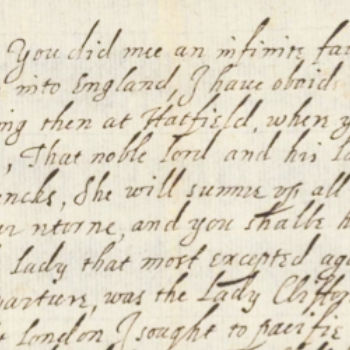 You did mee an infinite fa
into England, I have obaid
ing then at Hatfield, when y
, That noble lord and his La
encks, She will summe vp all
ur retorne, and you shalbe
Lady that most excepted aga
parture, was the Lady Cliffor
London I sought to pacifie